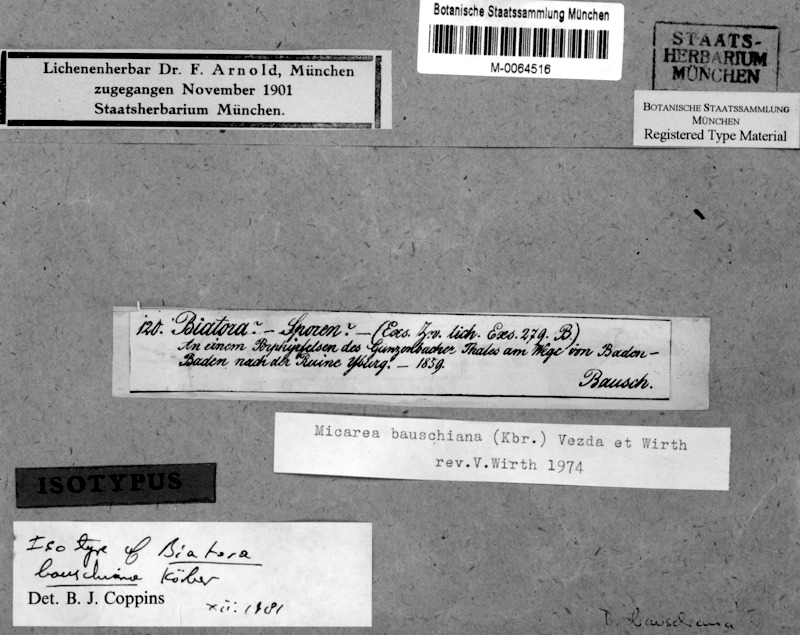 Botanische Staatssammlung München
M-0064516
STAATS-
HERBARIUM
MÜNCHEN
BOTANISCHE STAATSSAMMLUNG
MÜNCHEN
Registered Type Material
Lichenenherbar Dr. F. Arnold, München
zugegangen November 1901
Staatsherbarium München.
120. Biatora? – Sporen? – (Exs. Zw. lich. Exs. 279. B.)
An einem Porphyrfelsen des Gunzenbacher Thales am Wege von Baden-
Baden nach der Ruine Yburg. – 1859.
Bausch.
Micarea bauschiana (Kbr.) Vezda et Wirth
rev.V.Wirth 1974
ISOTYPUS
Isotype of Biatora
bauschiana Körber
Det. B. J. Coppins
xii. 1981
B. bauschiana